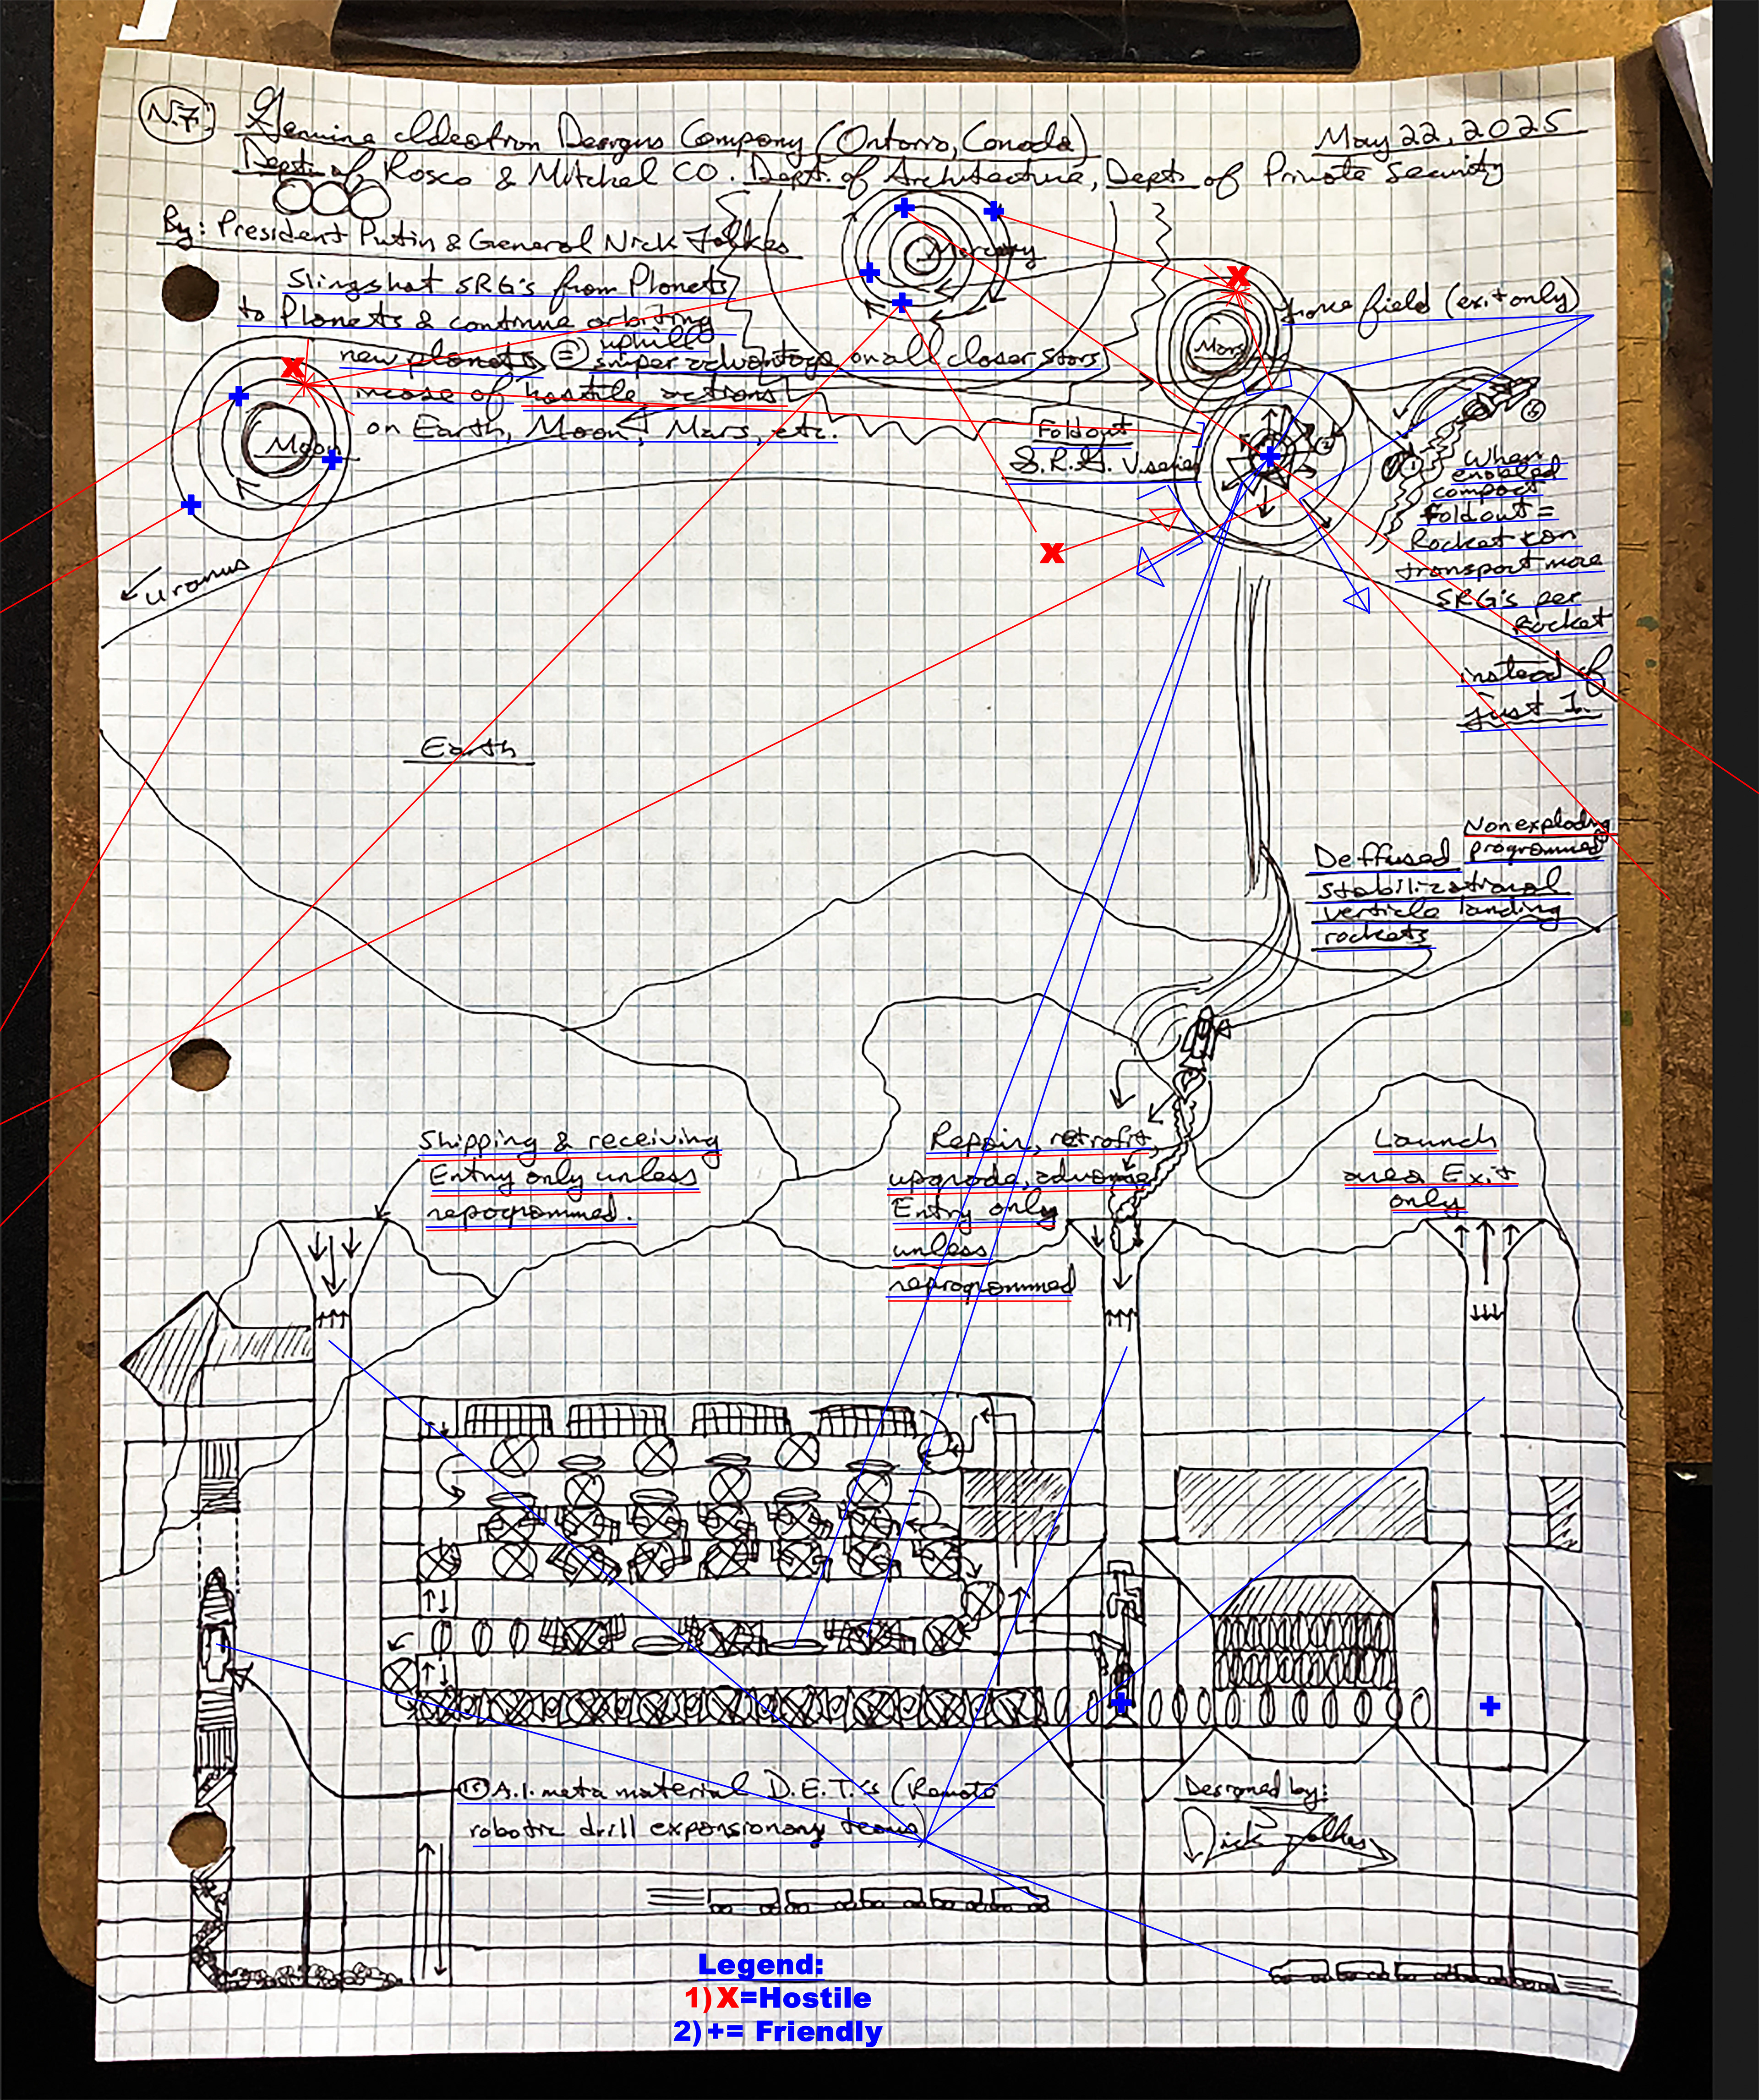 N.7.
Genuine Ideatron Designs Company (Ontario, Canada)
May 22, 2025
Dept. of, Rosco & Mitchel CO. Dept. of Architecture, Dept. of Private Security
By: President Putin & General Nick Folkes
Mercury
Slingshot SRG's from Planets
to Planets & continue orbiting
new planets, = uphill
sniper advantage on all closer stars
incase of hostile actions
on Earth, Moon, Mars, etc.
Mars
force field (exit only)
Moon
Foldout
S.R.G. V.series
When
enabled
compact
Foldout =
Rocket can
transport more
SRG's per
Rocket
instead of
just 1.
Uranus
Earth
Nonexploding
programmed
Deffused
stabilizational
verticle landing
rockets
Shipping & receiving
Entry only unless
repogrammed.
Repair, retrofit,
upgrade, advance
Entry only
unless
reprogrammed
Launch
area Exit
only
A.I. meta material D.E.T.'s (Remote
robotic drill expansionary teams)
Designed by:
Nick Folkes
Legend:
1) X=Hostile
2) += Friendly